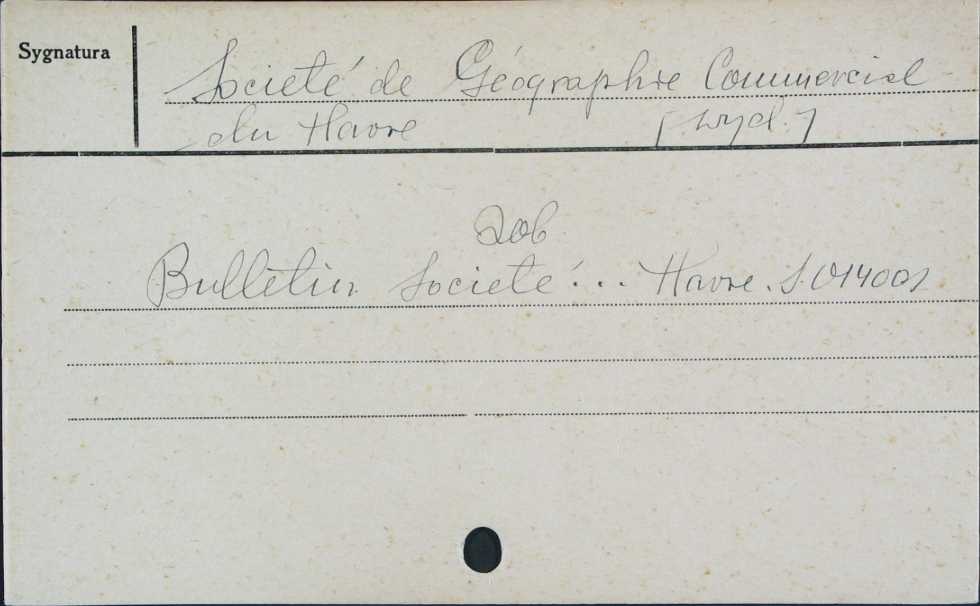 Sygnatura
Societé de Géographie Commercial
du Havre [wyd.]
zob
Bulletin Societé... Havre. S.014001